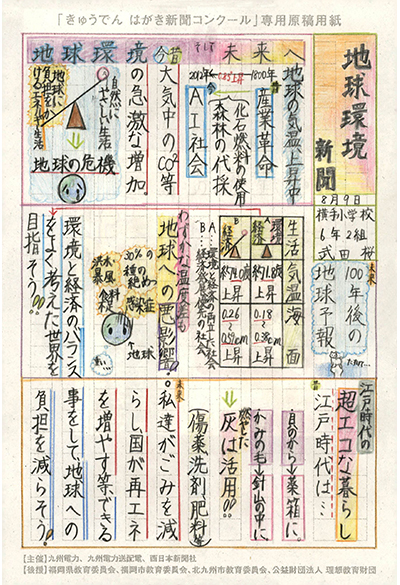 「きゅうでん はがき新聞コンクール」専用原稿用紙
地球環境の今昔 そして 未来へ
地球環境
新聞
8月9日
横手小学校
6年2組
武田 桜
未来
100年後の
地球予報
地球の気温上昇中
1800年
産業革命
化石燃料の使用
森林の伐採
AI社会
大気中のCO2等
の急激な増加。
自然に
やさしい生活
地球に
負担をか
ける
生活
地球の危機
生活
気温
海面
環境
経済
約1.8度
上昇
0.18
上昇
B
経済
約4.0度
上昇
0.26
上昇
A…環境と経済の両立した社会
B…経済発展優先の社会
わずかな温度差も
地球への悪影響!!
30%の
種の絶め…
感染症
洪水
暴風
食料
不足
地球
環境と経済のバランス
をよく考えた世界を
目指そう!!
江戸時代の
超エコな暮らし
昔
江戸時代は…
貝のから→薬箱に。
かみの毛→針山の中に
燃やした
灰は活用!!
(傷薬洗剤肥料等)
未来
。私達がごみを減
らし国が再エネ
を増やす等、できる
事をして、地球への
負担を減らそう。
【主催】九州電力、九州電力送配電、西日本新聞社
【後援】福岡県教育委員会、福岡市教育委員会、北九州市教育委員会、公益財団法人 理想教育財団